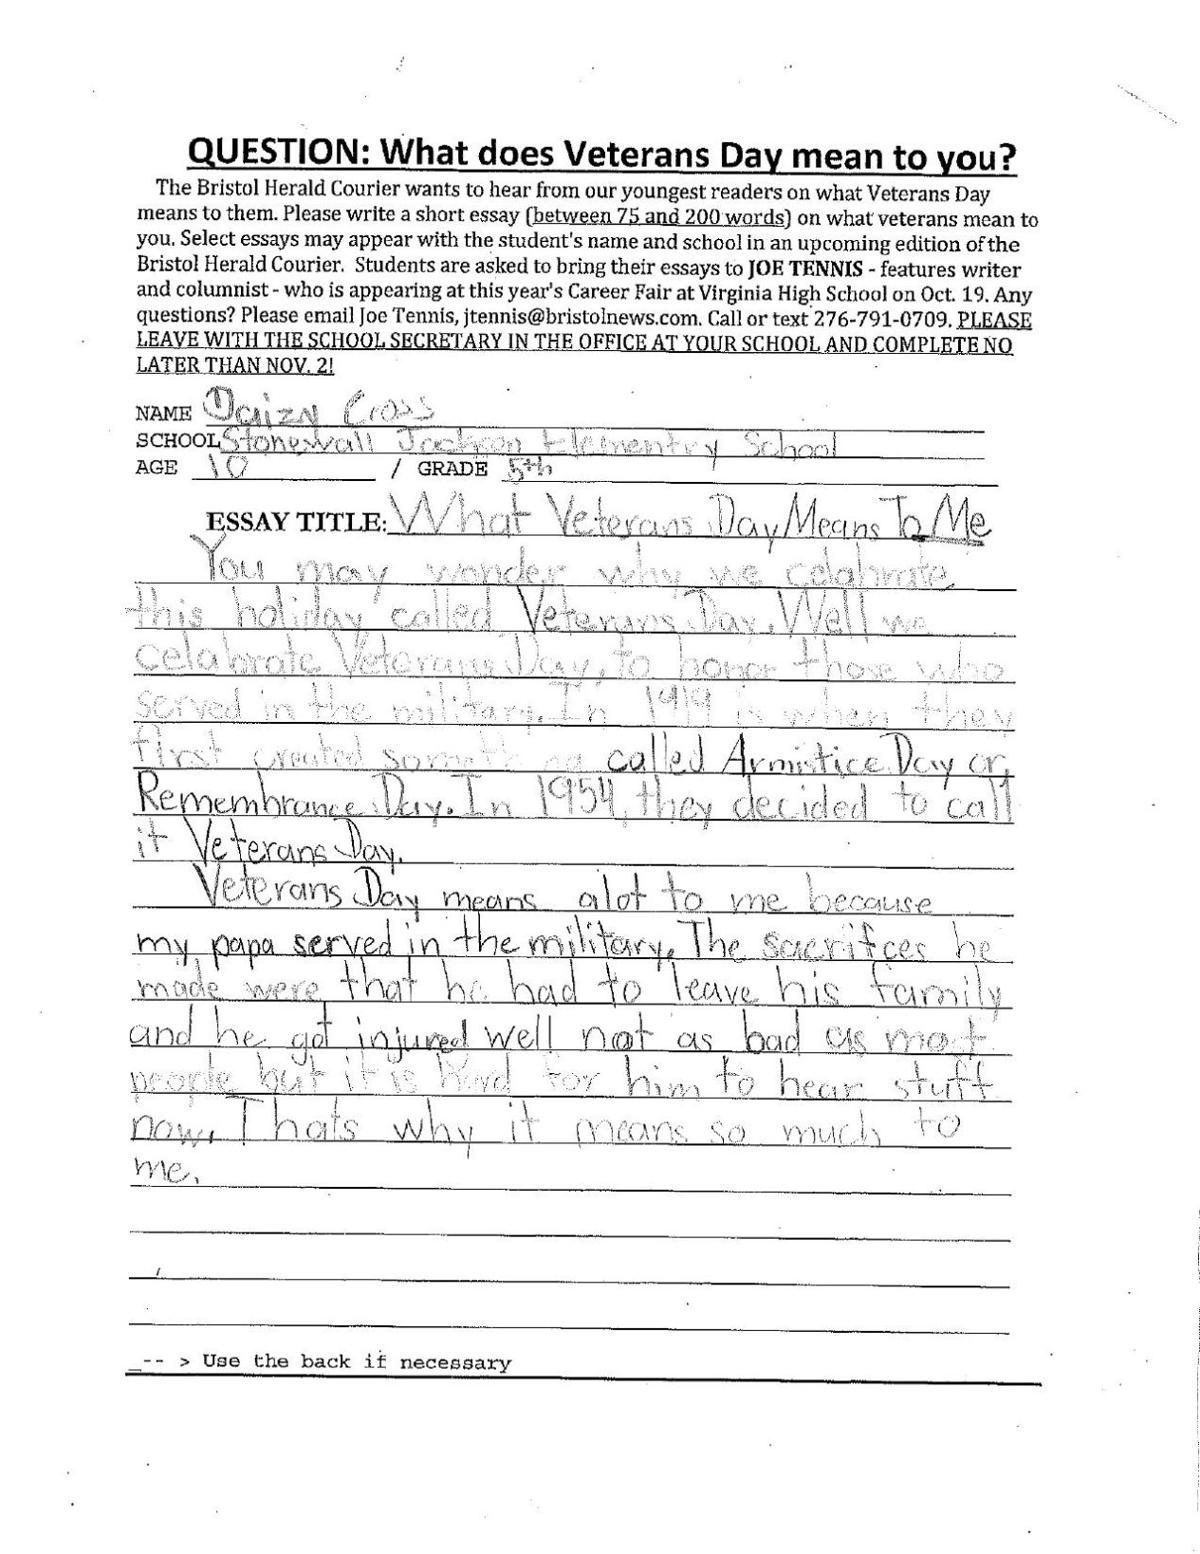 QUESTION: What does Veterans Day mean to you?
The Bristol Herald Courier wants to hear from our youngest readers on what Veterans Day
means to them. Please write a short essay (between 75 and 200 words) on what veterans mean to
you. Select essays may appear with the student's name and school in an upcoming edition of the
Bristol Herald Courier. Students are asked to bring their essays to JOE TENNIS - features writer
and columnist - who is appearing at this year's Career Fair at Virginia High School on Oct. 19. Any
questions? Please email Joe Tennis, jtennis@bristolnews.com. Call or text 276-791-0709. PLEASE
LEAVE WITH THE SCHOOL SECRETARY IN THE OFFICE AT YOUR SCHOOL AND COMPLETE NO
LATER THAN NOV. 2!
NAME Daizy Cross
SCHOOL Stonewall Jackson Elementry School
AGE 10 / GRADE 5th
ESSAY TITLE: What Veterans Day Means To Me
You may wonder why we celabrate
this holiday called Veterans Day. Well we
celabrate Veterans Day, to honor those who
served in the military. In 1919 is when they
first created something called Armistice Day or,
Remembrance Day. In 1954, they decided to call
it Veterans Day.
Veterans Day means alot to me because
my papa served in the military. The sacrifces he
made were that he had to leave his family
and he got injured well not as bad as most
people but it is hard for him to hear stuff
now. Thats why it means so much to
me.
_-- > Use the back if necessary